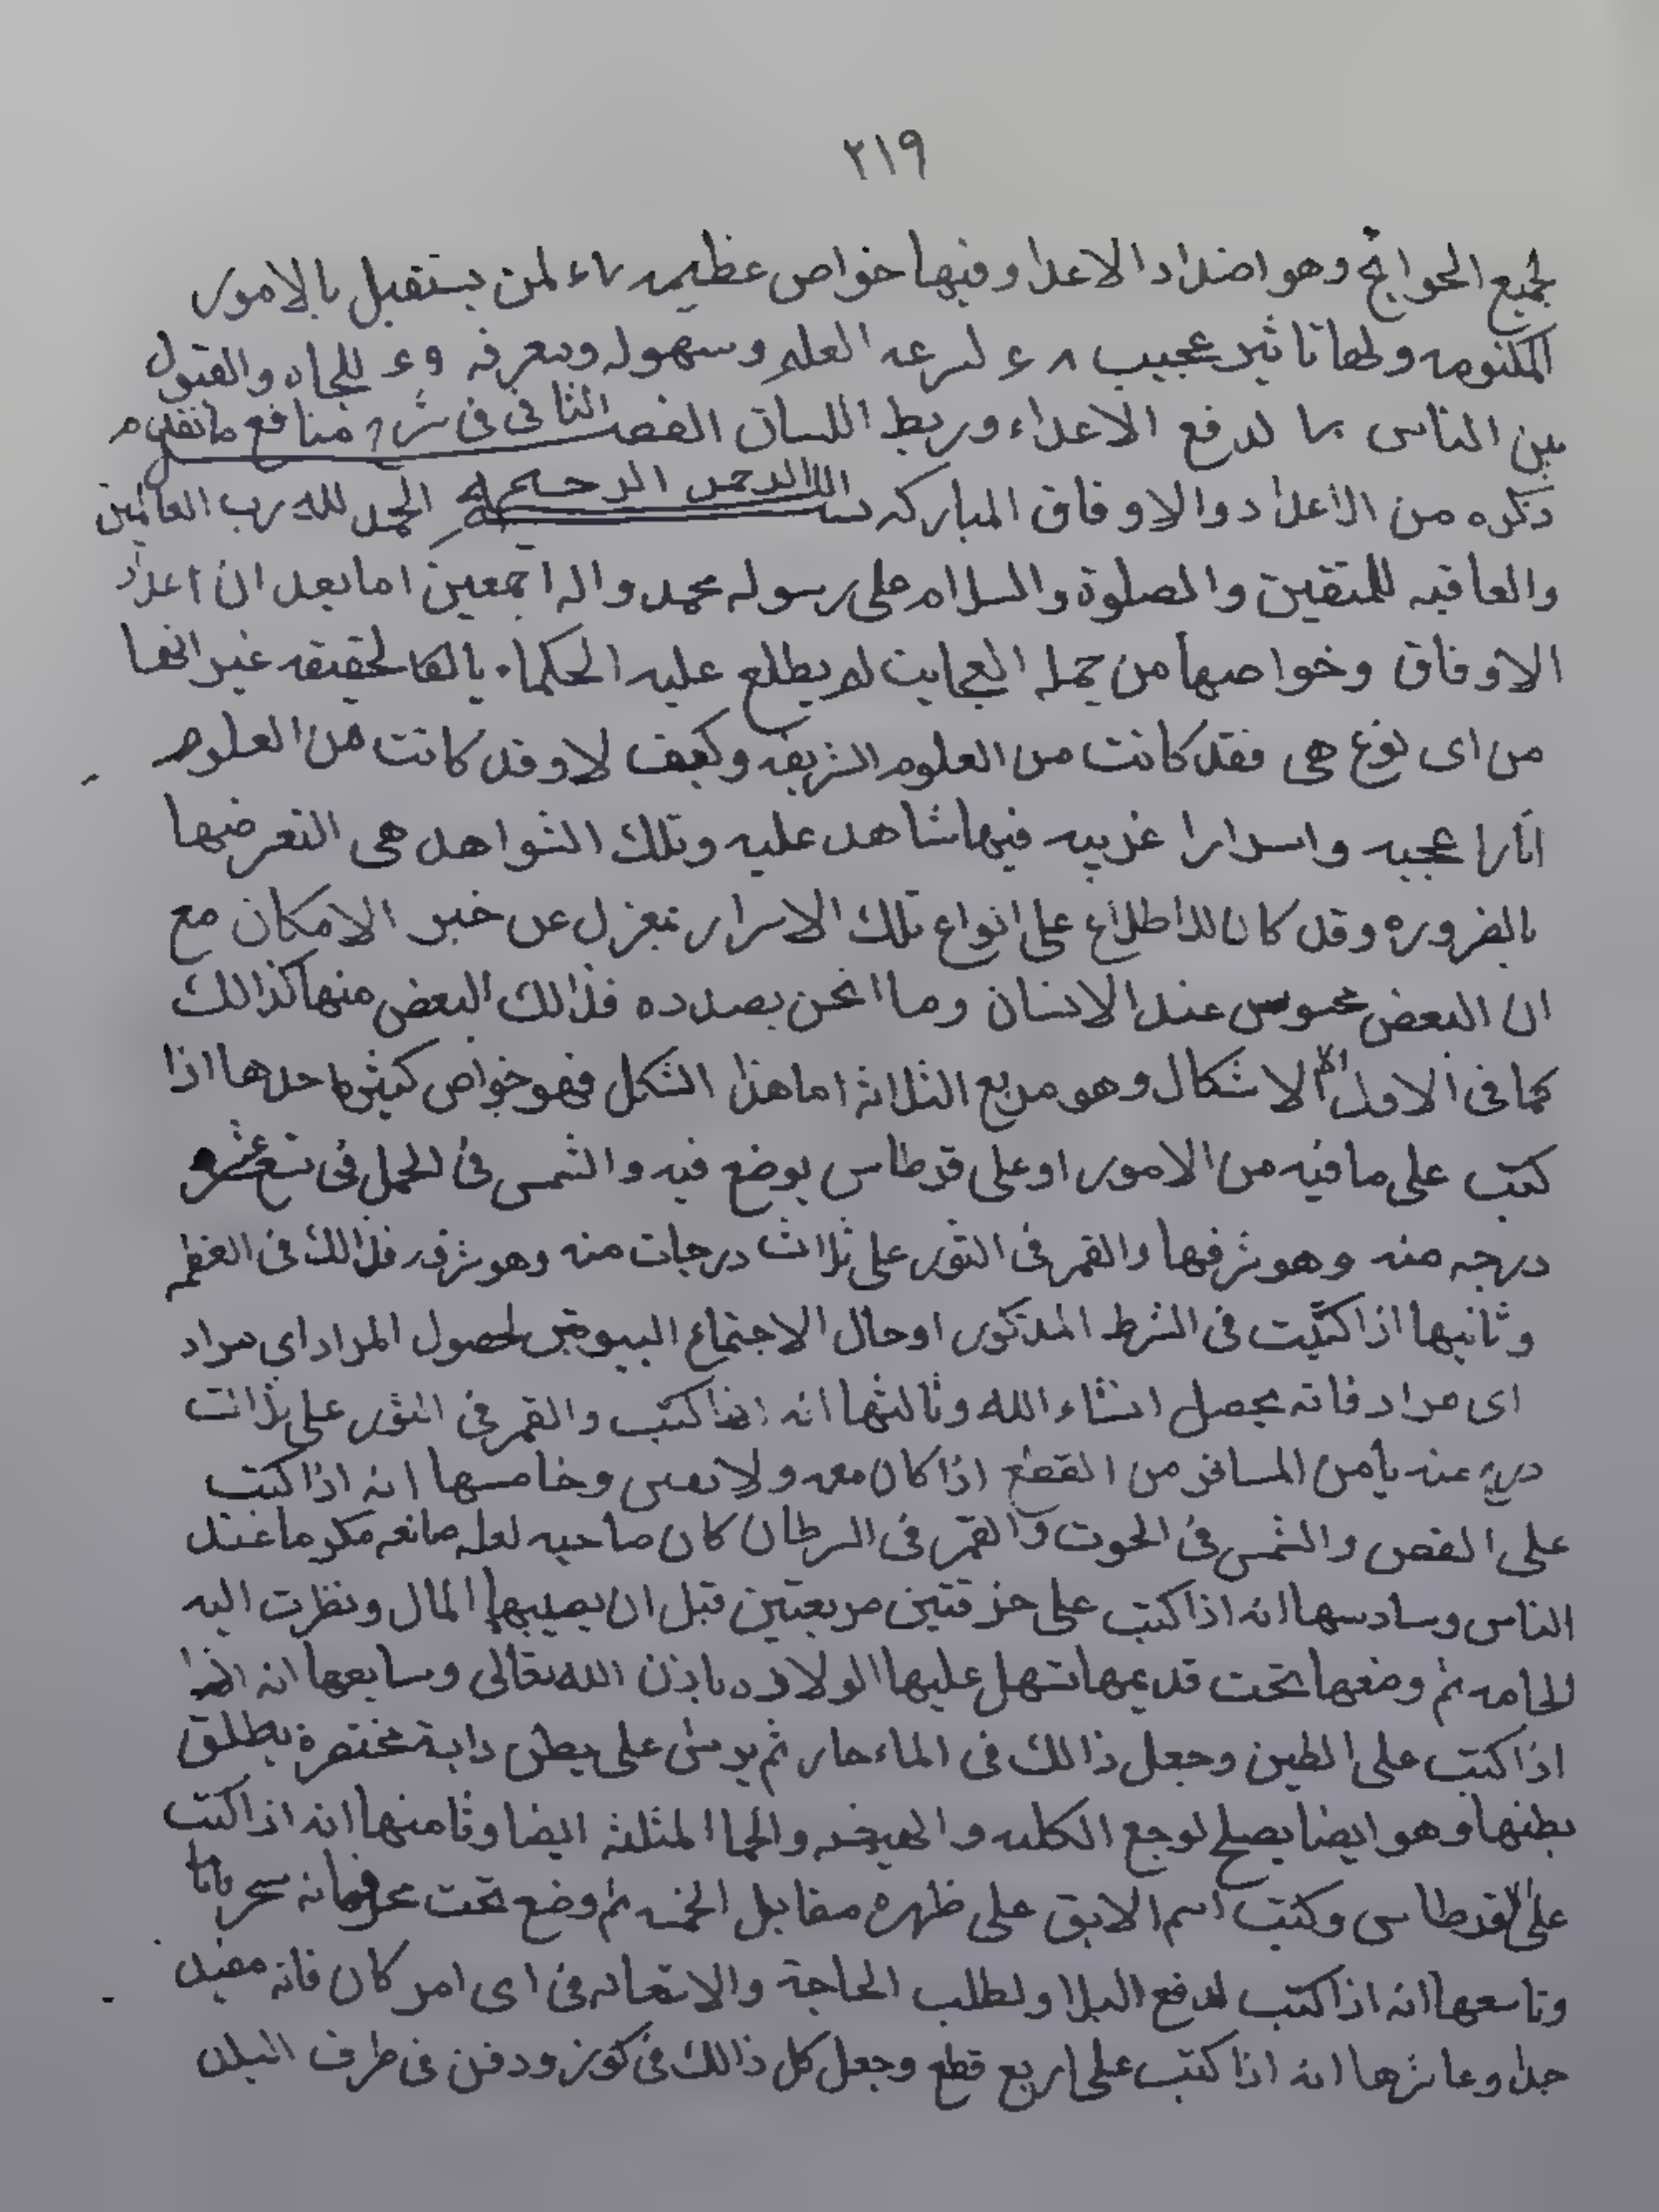 ٢١٩
لجميع الحوائج وهو اضداد الاعدا وفيها خواص عظيمه لمن يستقبل بالامور
المكتومه ولها تاثير عجيب ٨ ء لسرعه العلم وسهوله ومعرفه وء للجاه والقبول
بين الناس لدفع الاعداء وربط اللسان الفصل الثانى فى شرح منافع ماتقدم
ذكره من الاعداد والاوفاق المباركه بسم الله الرحمن الرحيم الحمد لله رب العالمين
والعاقبه للمتقين والصلوة والسلام على رسوله محمد واله اجمعين اما بعد ان اعداد
الاوفاق وخواصها من جمله العجايب لم يطلع عليه الحكماء غير انها
من اى نوع هى فقد كانت من العلوم الشريفه وكيف لا وقد كانت من العلوم
اثارا عجيبه واسرارا غريبه فيها شاهد عليه وتلك الشواهد هى التعرضها
بالضروره وقد كان للاطلاع على انواع تلك الاسرار بمعزل عن خبر الامكان مع
ان البعض محسوس عند الانسان وما نحن بصدده فذالك البعض منها كذالك
كما فى الاول الاشكال وهو مربع الثلاثه اما هذا الشكل فهو خواص كثيره احدها اذا
كتب على مافيه من الامور او على قرطاس يوضع فيه والشمس فى الحمل فى تسع عشره
درجه منه وهو شرفها والقمر فى الثور على ثلاث درجات منه وهو شرفه فذالك فى العظم
وثانيها اذا كتبت فى الشرط المذكور او حال الاجتماع لحصول المراد اي مراد
اى مراد فانه يحصل انشاء الله وثالثها انه اذا كتب والقمر فى الثور على ثلاث
عنه يأمن المسافر من القطع اذا كان معه ولا يعيى وخامسها انه اذا كتبت
على الفص والشمس فى الحوت والقمر فى السرطان كان صاحبه مكرما عند
الناس وسادسها انه اذا كتب على خرقتين مربعتين قبل ان يصيبها المال ونظرت اليه
الحامه ثم وضعها تحت قديمها تسهل عليها الولاده باذن الله تعالى وسابعها انه اذا
اذا كتب على الطين وجعل ذالك فى الماء حار ثم يرش على بطن دابة يطلق
بطنها وهو ايضا يصلح لوجع الكليه والحما المثلثه ايضا وثامنها انه اذا كتب
على القرطاس وكتب اسم الابق على ظهره مقابل الخمسه ثم وضع تحت
وتاسعها انه اذا كتب لدفع البلا ولطلب الحاجة فى اى امر كان فانه مفيد
جدا وعاشرها انه اذا كتب على اربع قطع وجعل كل ذالك فى كوز ودفن فى طرف البلد